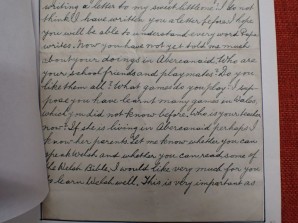 writing a letter to my sweet letters I do not
think I have written you a letter before I hope
you will be able to understand every word Papa
writes. Now you have not yet told me much
about your doings in Aberaanaid. Who are
your school friends and playmates? Do you
like them all? What games do you play? I sup-
pose you have learnt many games in Wales,
which you did not know before. Who is your teacher
now? If she is living in Aberaanaid perhaps I
know her parents. Let me know whether you can
speak Welsh and whether you can read some of
the Welsh Bible. I would like very much for you
to learn Welsh well. This is very important as